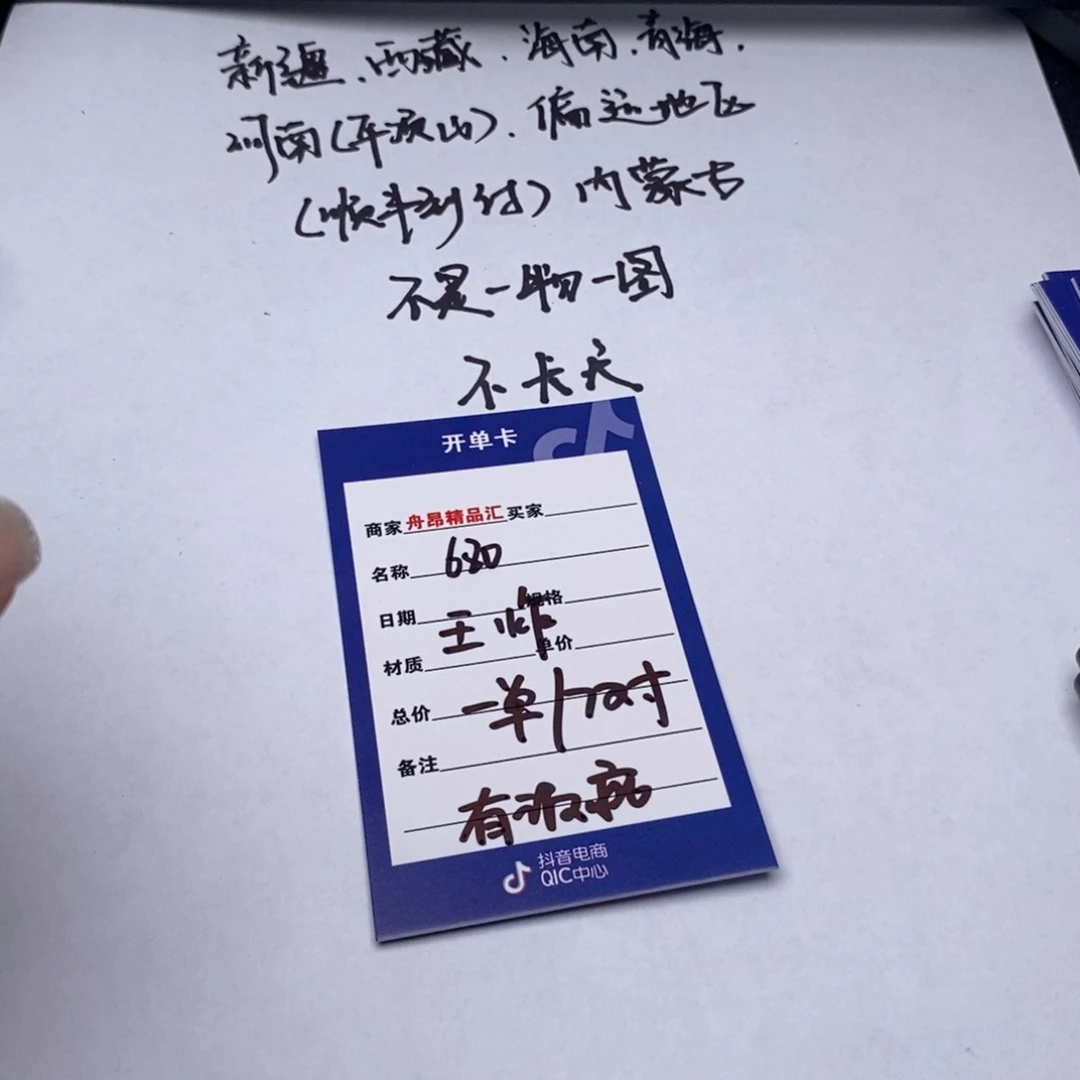 新疆.西藏.海南.青海.
河南(平顶山).偏远地区
(顺丰到付)内蒙古
不是一物一图
不卡尺
开单卡
商家 舟昂精品汇 买家
名称 680
日期 规格
王炸
材质 单价
总价 一单
备注
有
抖音电商
QIC中心